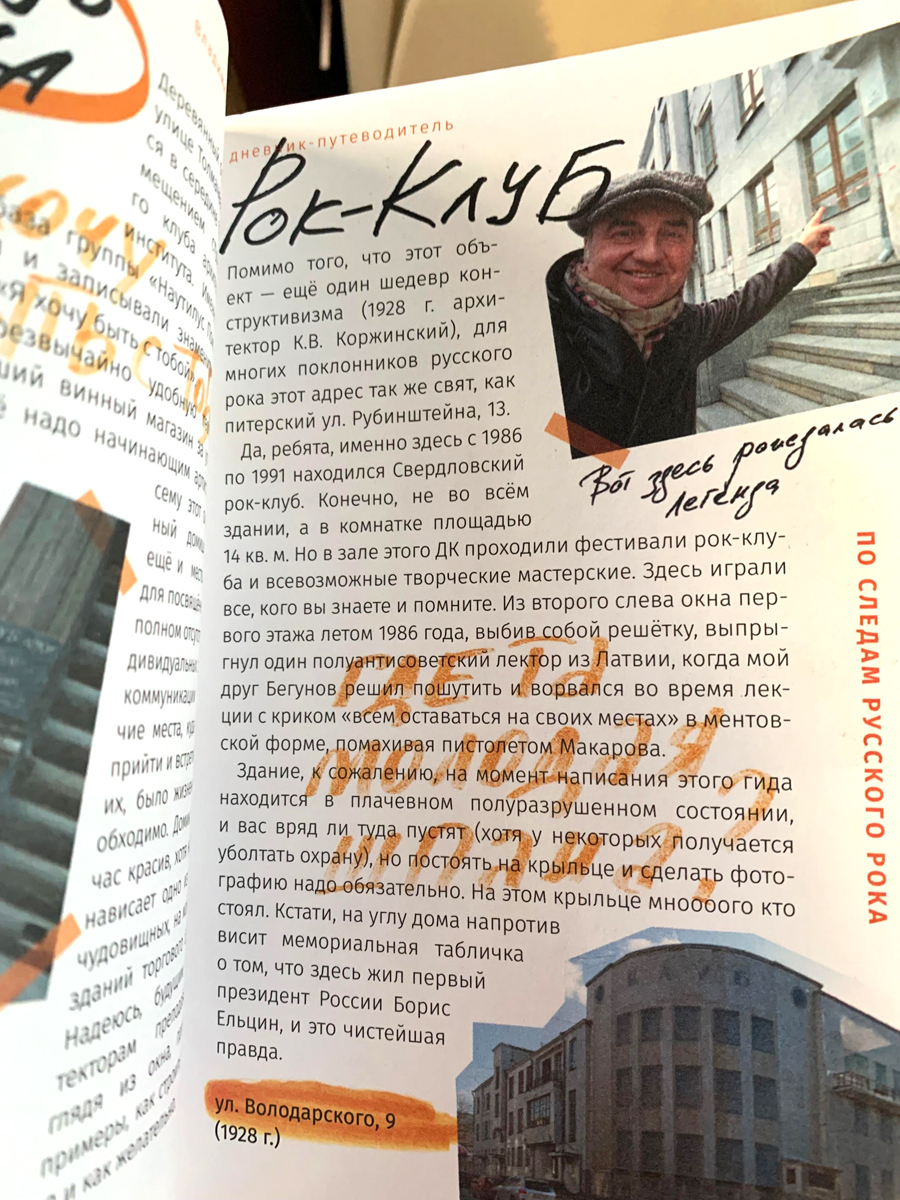 Деревянн
улице Тол
ся в середин
мещением
го клуба
института.
база группы «Наутилус
и записывали
«Я хочу быть с тобой»
удобную
винный магазин за
надо начинающим
сему этот
ный
ещё и
для
полном
дивидуальн
коммуникаци
чие места,
прийти и
их, было
обходимо.
час красив,
нависает
чудовищных,
зданий торгового
Надеюсь,
текторам
глядя из окна
примеры, как
и как желательно
хочу
дневник-путеводитель
Рок-Клуб
Помимо того, что этот объ-
ект — ещё один шедевр кон-
структивизма (1928 г. архи-
тектор К.В. Коржинский), для
многих поклонников русского
рока этот адрес так же свят, как
питерский ул. Рубинштейна, 13.
Да, ребята, именно здесь с 1986
по 1991 находился Свердловский
рок-клуб. Конечно, не во всём
здании, а в комнатке площадью
14 кв. м. Но в зале этого ДК проходили фестивали рок-клу-
ба и всевозможные творческие мастерские. Здесь играли
все, кого вы знаете и помните. Из второго слева окна пер-
вого этажа летом 1986 года, выбив собой решётку, выпры-
гнул один полуантисоветский лектор из Латвии, когда мой
друг Бегунов решил пошутить и ворвался во время лек-
ции с криком «всем оставаться на своих местах» в ментов-
ской форме, помахивая пистолетом Макарова.
Здание, к сожалению, на момент написания этого гида
находится в плачевном полуразрушенном состоянии,
и вас вряд ли туда пустят (хотя у некоторых получается
уболтать охрану), но постоять на крыльце и сделать фото-
графию надо обязательно. На этом крыльце мнооого кто
стоял. Кстати, на углу дома напротив
висит мемориальная табличка
о том, что здесь жил первый
президент России Борис
Ельцин, и это чистейшая
правда.
ул. Володарского, 9
(1928 г.)
Вот здесь рождалась
легенда
ГДЕ ТА
МОЛОДАЯ
ШПАНА?
ПО СЛЕДАМ РУССКОГО РОКА
КЛУБ